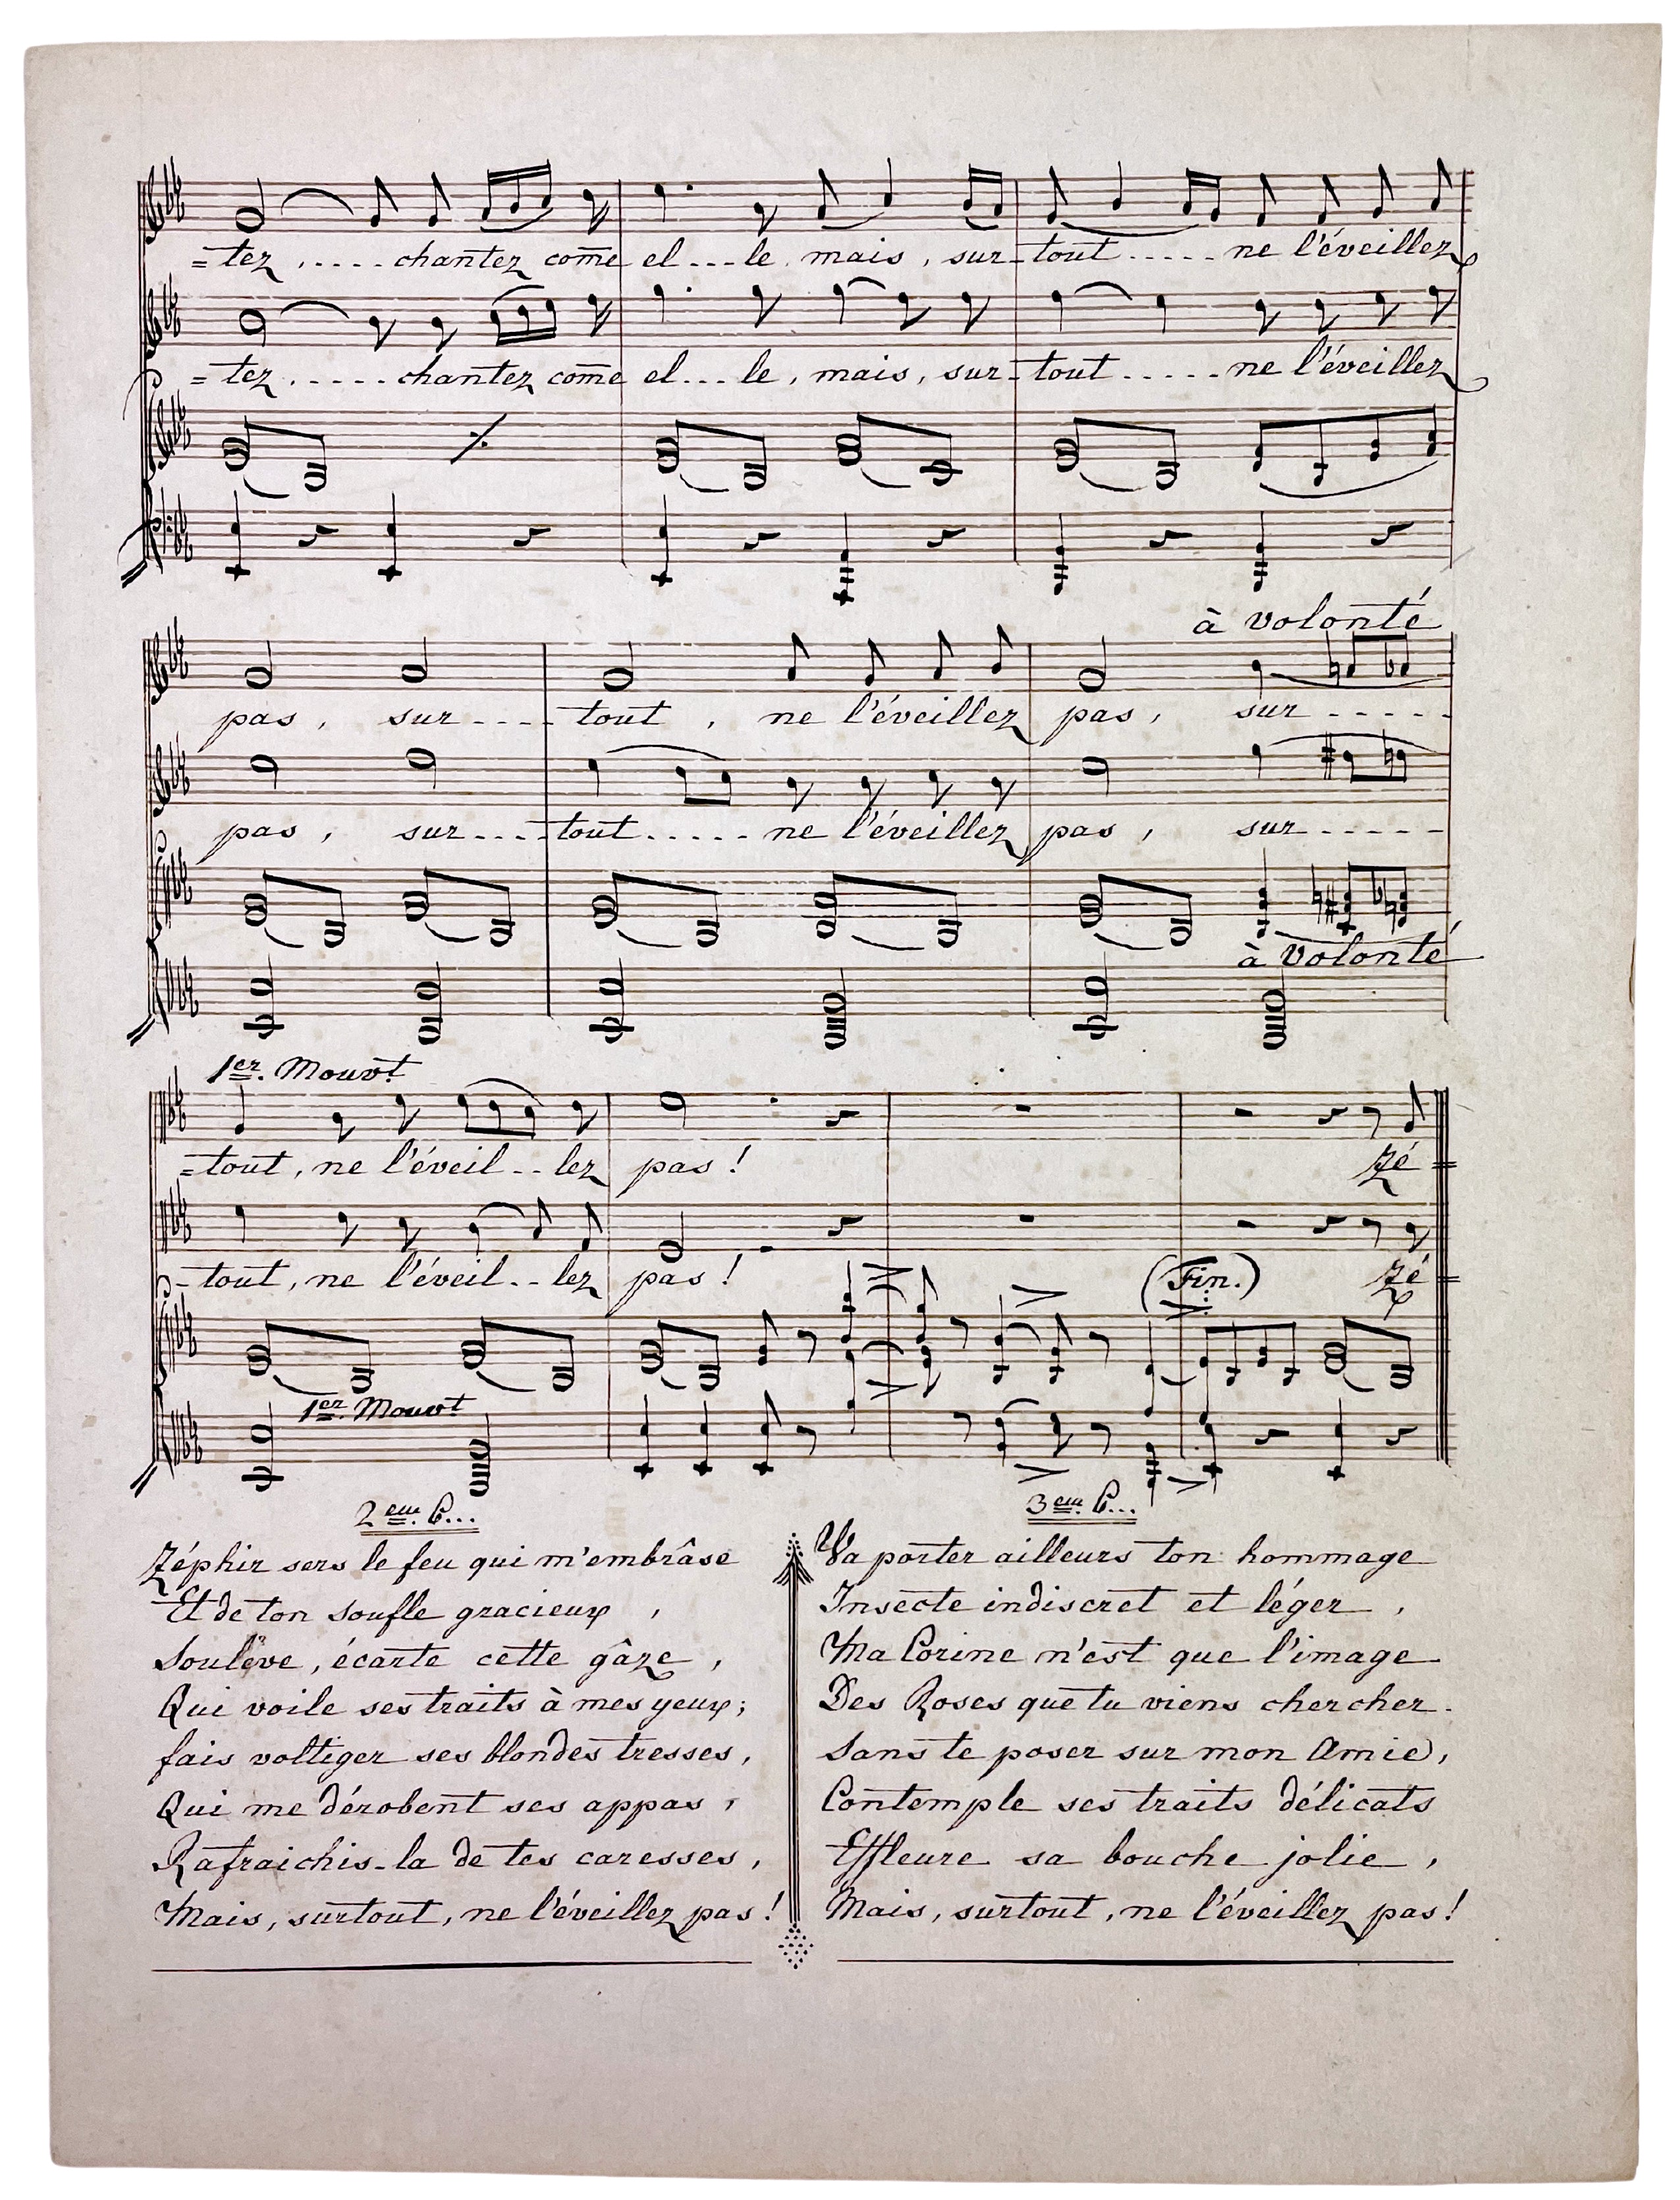 =tez,....chantez come el...le mais, sur-tout.....ne l'éveillez
=tez.....chantez come el...le, mais, sur-tout.....ne l'éveillez
à volonté
pas, sur....tout, ne l'éveillez pas, sur.....
pas, sur....tout.....ne l'éveillez pas, sur.....
à volonté
1er. Mouvt.
=tout, ne l'éveil..lez pas! Zé=
-tout, ne l'éveil..lez pas! (Fin.) Zé=
1er. Mouvt
2em. C...
Zéphir sers le feu qui m'embrâse
Et de ton soufle gracieux,
Soulève, écarte cette gâze,
Qui voile ses traits à mes yeux;
fais voltiger ses blondes tresses,
Qui me dérobent ses appas,
Rafraichis-la de tes caresses,
Mais, surtout, ne l'éveillez pas!
3em. C...
Va porter ailleurs ton hommage
Insecte indiscret et léger,
Ma Corine n'est que l'image
Des Roses que tu viens chercher.
Sans te poser sur mon Amie,
Contemple ses traits délicats
Effleure sa bouche jolie,
Mais, surtout, ne l'éveillez pas!